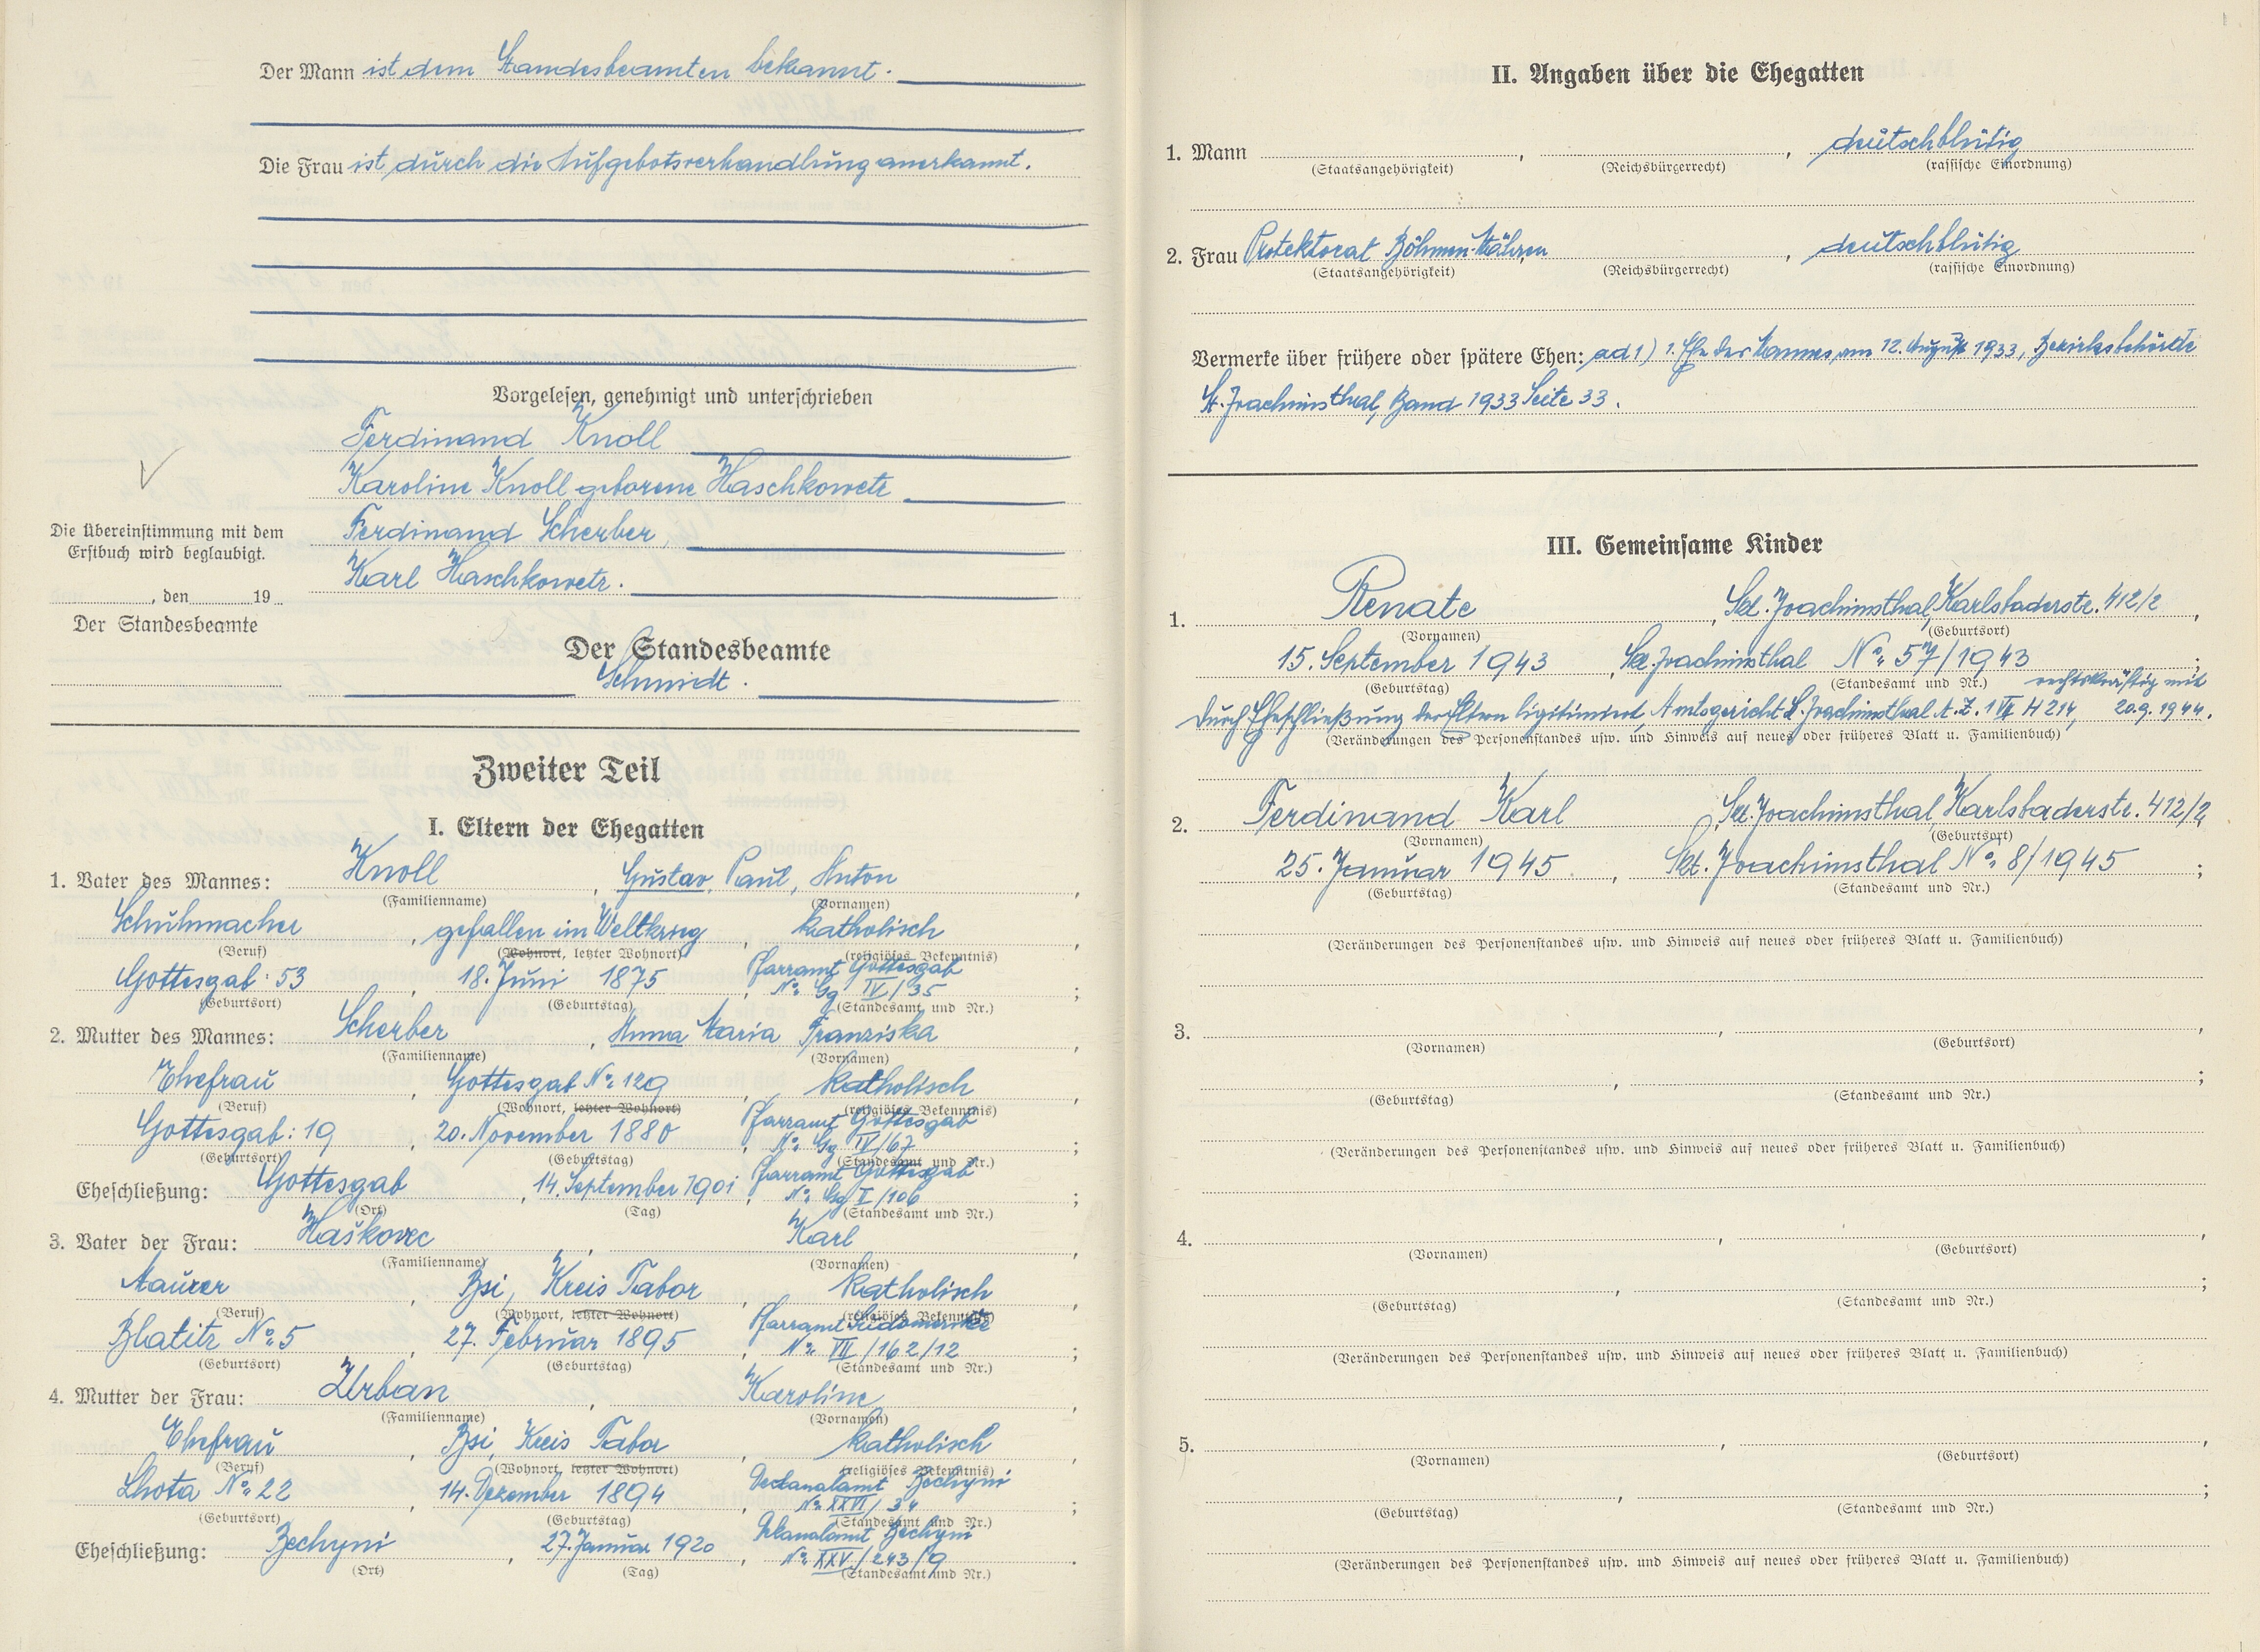 Der Mann ist dem Standesbeamten bekannt.
Die Frau ist durch die Aufgebotsverhandlung anerkannt.
Vorgelesen, genehmigt und unterschrieben
Ferdinand Knoll
Karoline Knoll geborene Haschkowetz
Ferdinand Scherber,
Karl Haschkowetz.
Die Übereinstimmung mit dem
Erstbuch wird beglaubigt.
, den 19
Der Standesbeamte
Der Standesbeamte
Schmidt.
Zweiter Teil
I. Eltern der Ehegatten
1. Vater des Mannes: Knoll, Gustav, Paul, Anton,
(Familienname) (Vornamen)
Schuhmacher, gefallen im Weltkrieg, katholisch,
(Beruf) (Wohnort, letzter Wohnort) (religiöses Bekenntnis)
Gottesgab: 53, 18. Juni 1875, Pfarramt Gottesgab
No: Gg IV/35;
(Geburtsort) (Geburtstag) (Standesamt und Nr.)
2. Mutter des Mannes: Scherber, Anna Maria Franziska,
(Familienname) (Vornamen)
Ehefrau, Gottesgab No: 129, katholisch,
(Beruf) (Wohnort, letzter Wohnort) (religiöses Bekenntnis)
Gottesgab: 19, 20. November 1880, Pfarramt Gottesgab
No: Gg IV/67;
(Geburtsort) (Geburtstag) (Standesamt und Nr.)
Eheschließung: Gottesgab, 14. September 1901, Pfarramt Gottesgab
No: Gg V/106;
(Ort) (Tag) (Standesamt und Nr.)
3. Vater der Frau: Haškovec, Karl,
(Familienname) (Vornamen)
Maurer, Bsi, Kreis Tabor, katholisch,
(Beruf) (Wohnort, letzter Wohnort) (religiöses Bekenntnis)
Blatitz No: 5, 27. Februar 1895, Pfarramt
No: VII/162/12;
(Geburtsort) (Geburtstag) (Standesamt und Nr.)
4. Mutter der Frau: Urban, Karoline,
(Familienname) (Vornamen)
Ehefrau, Bsi, Kreis Tabor, katholisch,
(Beruf) (Wohnort, letzter Wohnort) (religiöses Bekenntnis)
Lhota No: 22, 14. Dezember 1894, Dechanalamt Bechyni
No: XXVI/34;
(Geburtsort) (Geburtstag) (Standesamt und Nr.)
Eheschließung: Bechyni, 27. Januar 1920, Bechyni
No: XXV/243/9.
(Ort) (Tag) (Standesamt und Nr.)
II. Angaben über die Ehegatten
1. Mann, , deutschblütig
(Staatsangehörigkeit) (Reichsbürgerrecht) (rassische Einordnung)
2. Frau Protektorat Böhmen-Mähren, deutschblütig
(Staatsangehörigkeit) (Reichsbürgerrecht) (rassische Einordnung)
Vermerke über frühere oder spätere Ehen: ad 1) 1. Ehe des Mannes am 12. August 1933, Bezirksbehörde
St. Joachimsthal, Band 1933 Seite 33.
III. Gemeinsame Kinder
1. Renate, Skt. Joachimsthal, Karlsbaderstr. 412/2,
(Vornamen) (Geburtsort)
15. September 1943, Skt. Joachimsthal No: 57/1943;
(Geburtstag) (Standesamt und Nr.) rechtskräftig mit
Durch Eheschließung der Eltern legitimiert, Amtsgericht St. Joachimsthal A.Z. 1 VII H 214, 20.9.1944.
(Veränderungen des Personenstandes usw. und Hinweis auf neues oder früheres Blatt u. Familienbuch)
2. Ferdinand Karl, Skt. Joachimsthal, Karlsbaderstr. 412/2,
(Vornamen) (Geburtsort)
25. Januar 1945, Skt. Joachimsthal No: 8/1945;
(Geburtstag) (Standesamt und Nr.)
(Veränderungen des Personenstandes usw. und Hinweis auf neues oder früheres Blatt u. Familienbuch)
3. , ,
(Vornamen) (Geburtsort)
, ;
(Geburtstag) (Standesamt und Nr.)
(Veränderungen des Personenstandes usw. und Hinweis auf neues oder früheres Blatt u. Familienbuch)
4. , ,
(Vornamen) (Geburtsort)
, ;
(Geburtstag) (Standesamt und Nr.)
(Veränderungen des Personenstandes usw. und Hinweis auf neues oder früheres Blatt u. Familienbuch)
5. , ,
(Vornamen) (Geburtsort)
, ;
(Geburtstag) (Standesamt und Nr.)
(Veränderungen des Personenstandes usw. und Hinweis auf neues oder früheres Blatt u. Familienbuch)